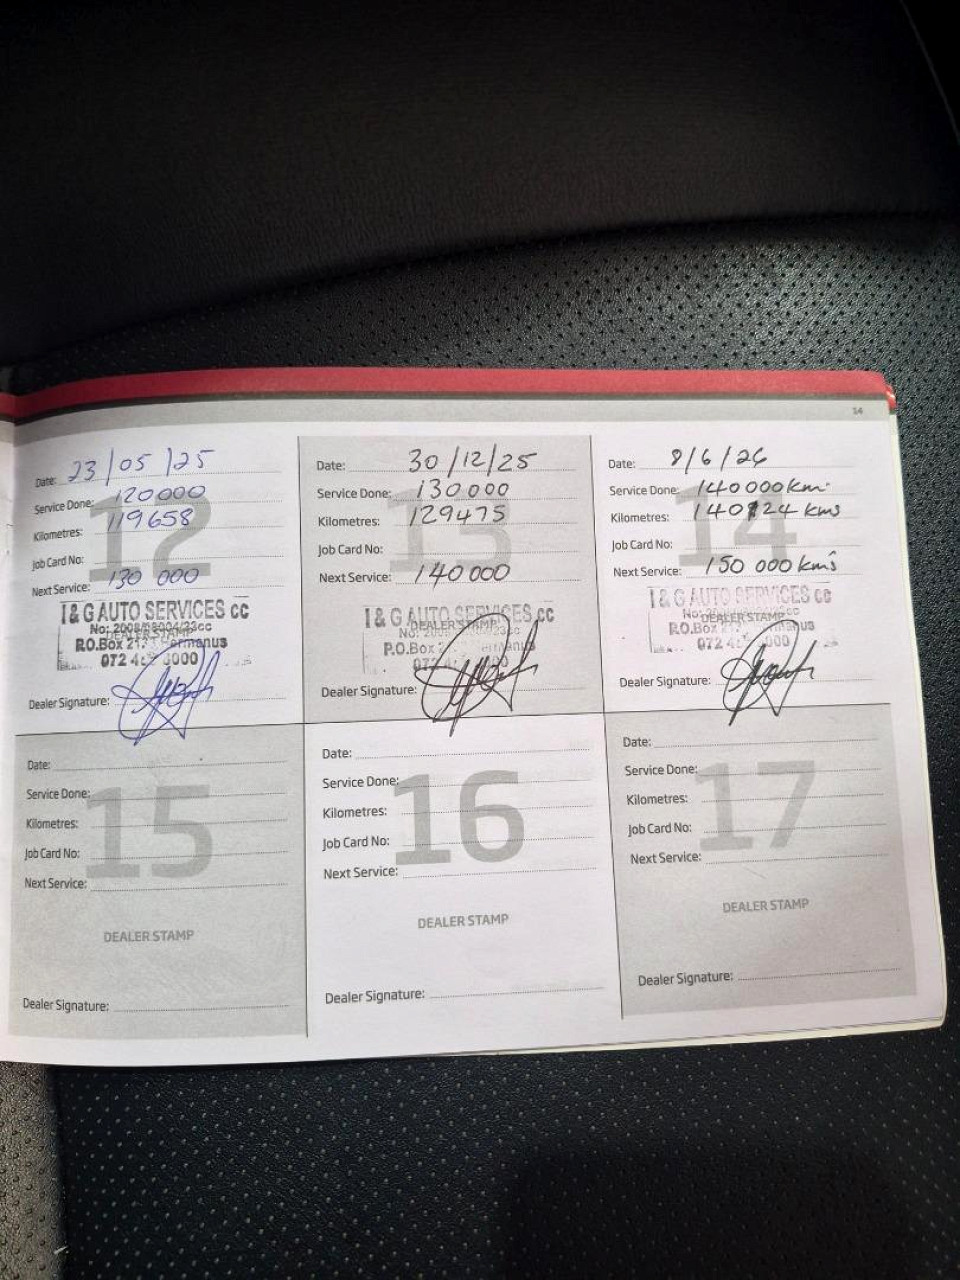 14
Date: 23/05/25
Service Done: 120000
Kilometres: 119658
Job Card No:
Next Service: 130 000
12
I & G AUTO SERVICES CC
DEALER STAMP
P.O.Box
Dealer Signature:
Date: 30/12/25
Service Done: 130000
Kilometres: 129475
Job Card No:
Next Service: 140000
13
I & G AUTO SERVICES CC
DEALER STAMP
P.O.Box
Dealer Signature:
Date: 8/6/26
Service Done: 140000km
Kilometres: 140124 kms
Job Card No:
Next Service: 150 000 kms
14
I & G AUTO SERVICES CC
DEALER STAMP
P.O.Box
Dealer Signature:
Date:
Service Done:
Kilometres:
Job Card No:
Next Service:
15
DEALER STAMP
Dealer Signature:
Date:
Service Done:
Kilometres:
Job Card No:
Next Service:
16
DEALER STAMP
Dealer Signature:
Date:
Service Done:
Kilometres:
Job Card No:
Next Service:
17
DEALER STAMP
Dealer Signature: